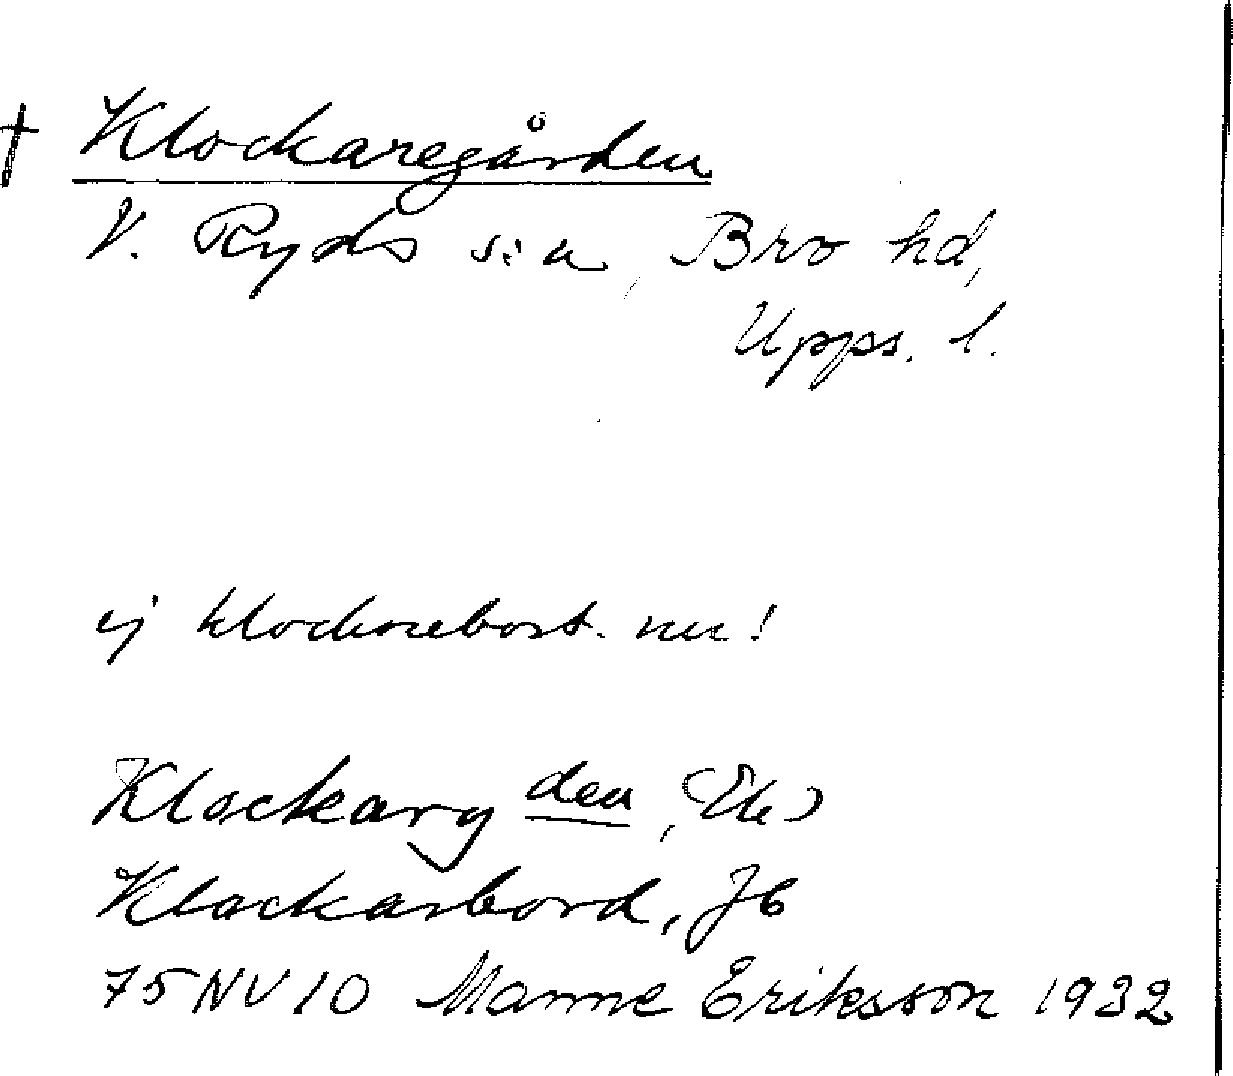 † Klockaregården
V. Ryds s:n, Bro hd,
Upps. l.
ej klockarebost. nu!
Klockarg den, (Ek)
Klockarbord, Jb
75NV10 Manne Eriksson 1932